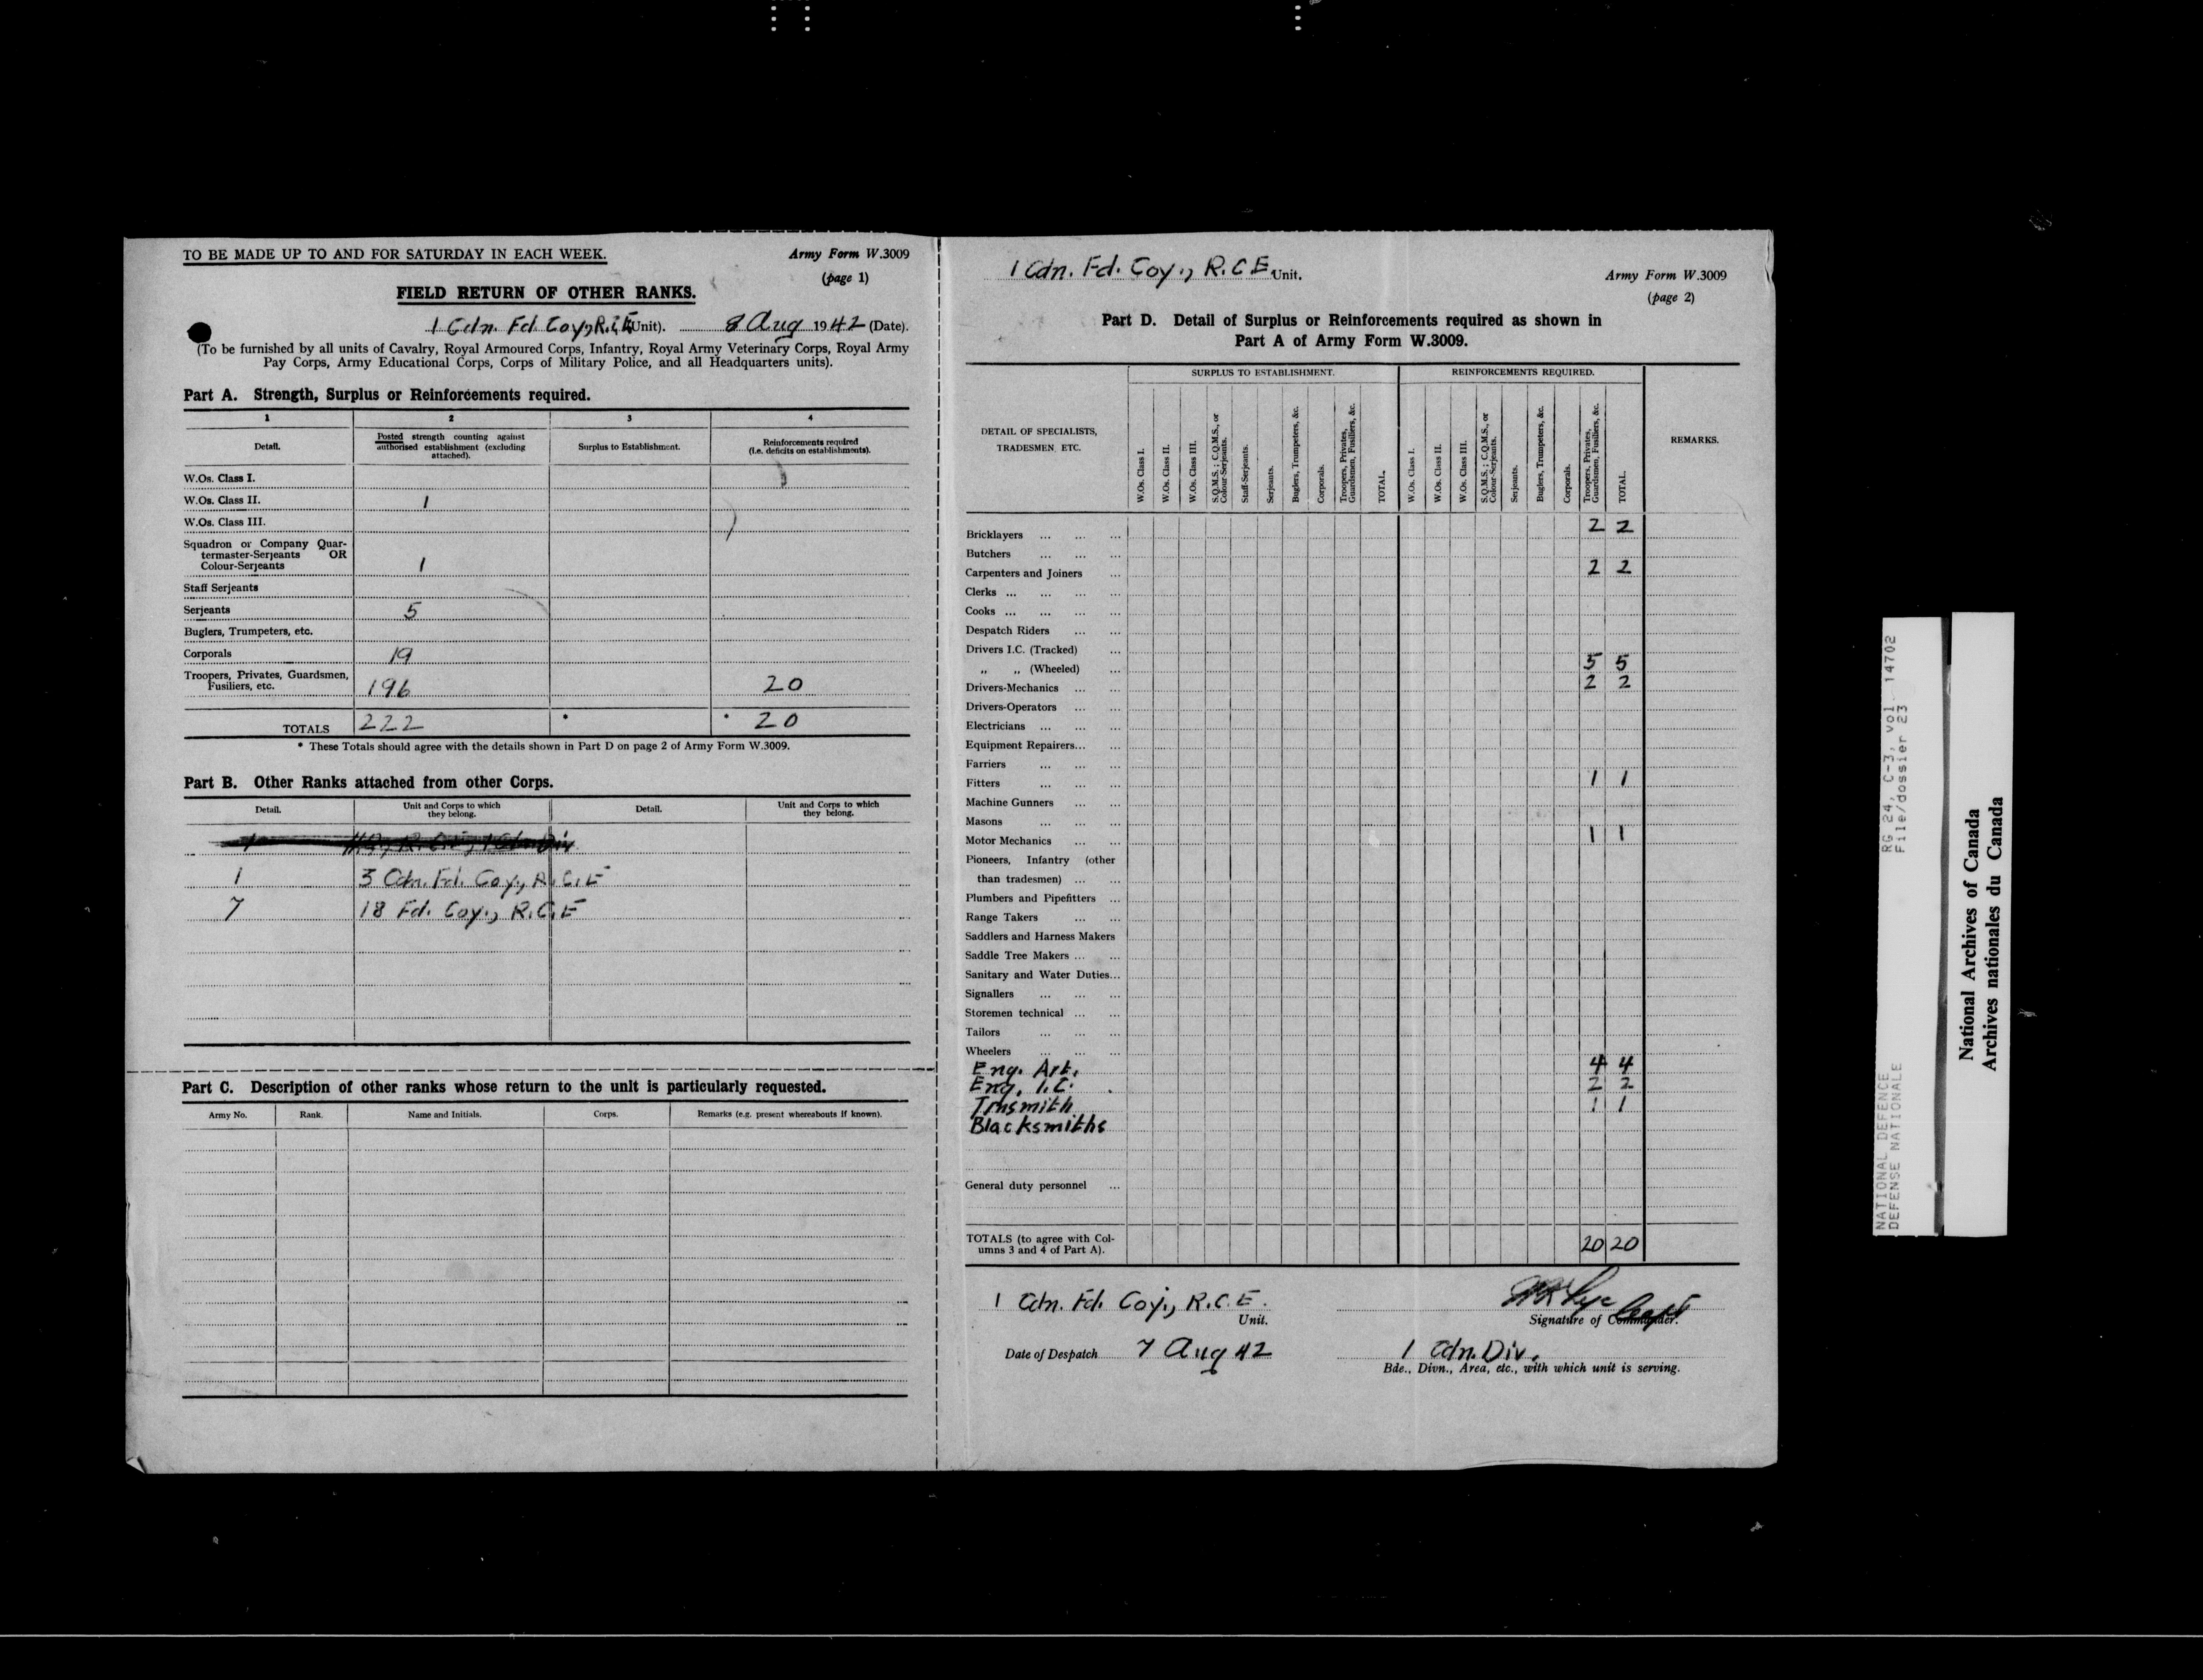 TO BE MADE UP TO AND FOR SATURDAY IN EACH WEEK.
Army Form W.3009
(page 1)
FIELD RETURN OF OTHER RANKS.
1 Cdn. Fd. Coy., R.C.E. (Unit). 8 Aug 1942 (Date).
(To be furnished by all units of Cavalry, Royal Armoured Corps, Infantry, Royal Army Veterinary Corps, Royal Army
Pay Corps, Army Educational Corps, Corps of Military Police, and all Headquarters units).
Part A. Strength, Surplus or Reinforcements required.
1 2 3 4
Detail.
Posted strength counting against
authorised establishment (excluding
attached).
Surplus to Establishment.
Reinforcements required
(i.e. deficits on establishments).
W.Os. Class I.
W.Os. Class II. 1
W.Os. Class III.
Squadron or Company Quar-
termaster-Serjeants OR
Colour-Serjeants 1
Staff Serjeants
Serjeants 5
Buglers, Trumpeters, etc.
Corporals 19
Troopers, Privates, Guardsmen,
Fusiliers, etc. 196 20
TOTALS 222 * * 20
* These Totals should agree with the details shown in Part D on page 2 of Army Form W.3009.
Part B. Other Ranks attached from other Corps.
Detail.
Unit and Corps to which
they belong.
Detail.
Unit and Corps to which
they belong.
1 3 Cdn. Fd. Coy., R.C.E
7 18 Fd. Coy., R.C.E
Part C. Description of other ranks whose return to the unit is particularly requested.
Army No. Rank. Name and Initials. Corps. Remarks (e.g. present whereabouts if known).
1 Cdn. Fd. Coy., R.C.E. Unit.
Army Form W.3009
(page 2)
Part D. Detail of Surplus or Reinforcements required as shown in
Part A of Army Form W.3009.
DETAIL OF SPECIALISTS,
TRADESMEN, ETC.
SURPLUS TO ESTABLISHMENT.
W.Os. Class I.
W.Os. Class II.
W.Os. Class III.
S.Q.M.S.; C.Q.M.S., or
Colour-Serjeants.
Staff-Serjeants.
Serjeants.
Buglers, Trumpeters, &c.
Corporals.
Troopers, Privates,
Guardsmen, Fusiliers, &c.
TOTAL.
REINFORCEMENTS REQUIRED.
W.Os. Class I.
W.Os. Class II.
W.Os. Class III.
S.Q.M.S.; C.Q.M.S., or
Colour-Serjeants.
Serjeants.
Buglers, Trumpeters, &c.
Corporals.
Troopers, Privates,
Guardsmen, Fusiliers, &c.
TOTAL.
REMARKS.
Bricklayers ... ... ... 2 2
Butchers ... ... ...
Carpenters and Joiners ... 2 2
Clerks ... ... ... ...
Cooks ... ... ... ...
Despatch Riders ... ...
Drivers I.C. (Tracked) ...
„ „ (Wheeled) ... 5 5
Drivers-Mechanics ... ... 2 2
Drivers-Operators ... ...
Electricians ... ... ...
Equipment Repairers... ...
Farriers ... ... ...
Fitters ... ... ... 1 1
Machine Gunners ... ...
Masons ... ... ...
Motor Mechanics ... ... 1 1
Pioneers, Infantry (other
than tradesmen) ... ...
Plumbers and Pipefitters ...
Range Takers ... ...
Saddlers and Harness Makers
Saddle Tree Makers ... ...
Sanitary and Water Duties...
Signallers ... ... ...
Storemen technical ... ...
Tailors ... ... ...
Wheelers ... ... ...
Eng. Art. 4 4
Eng. I.C. 2 2
Tinsmith 1 1
Blacksmiths
General duty personnel ...
TOTALS (to agree with Col-
umns 3 and 4 of Part A). 20 20
1 Cdn. Fd. Coy., R.C.E.
Unit.
Capt
Signature of Commander.
Date of Despatch 7 Aug 42
1 Cdn. Div.
Bde., Divn., Area, etc., with which unit is serving.
NATIONAL DEFENCE RG 24, C-3, vol. 14702
DEFENSE NATIONALE File/dossier 23
National Archives of Canada
Archives nationales du Canada